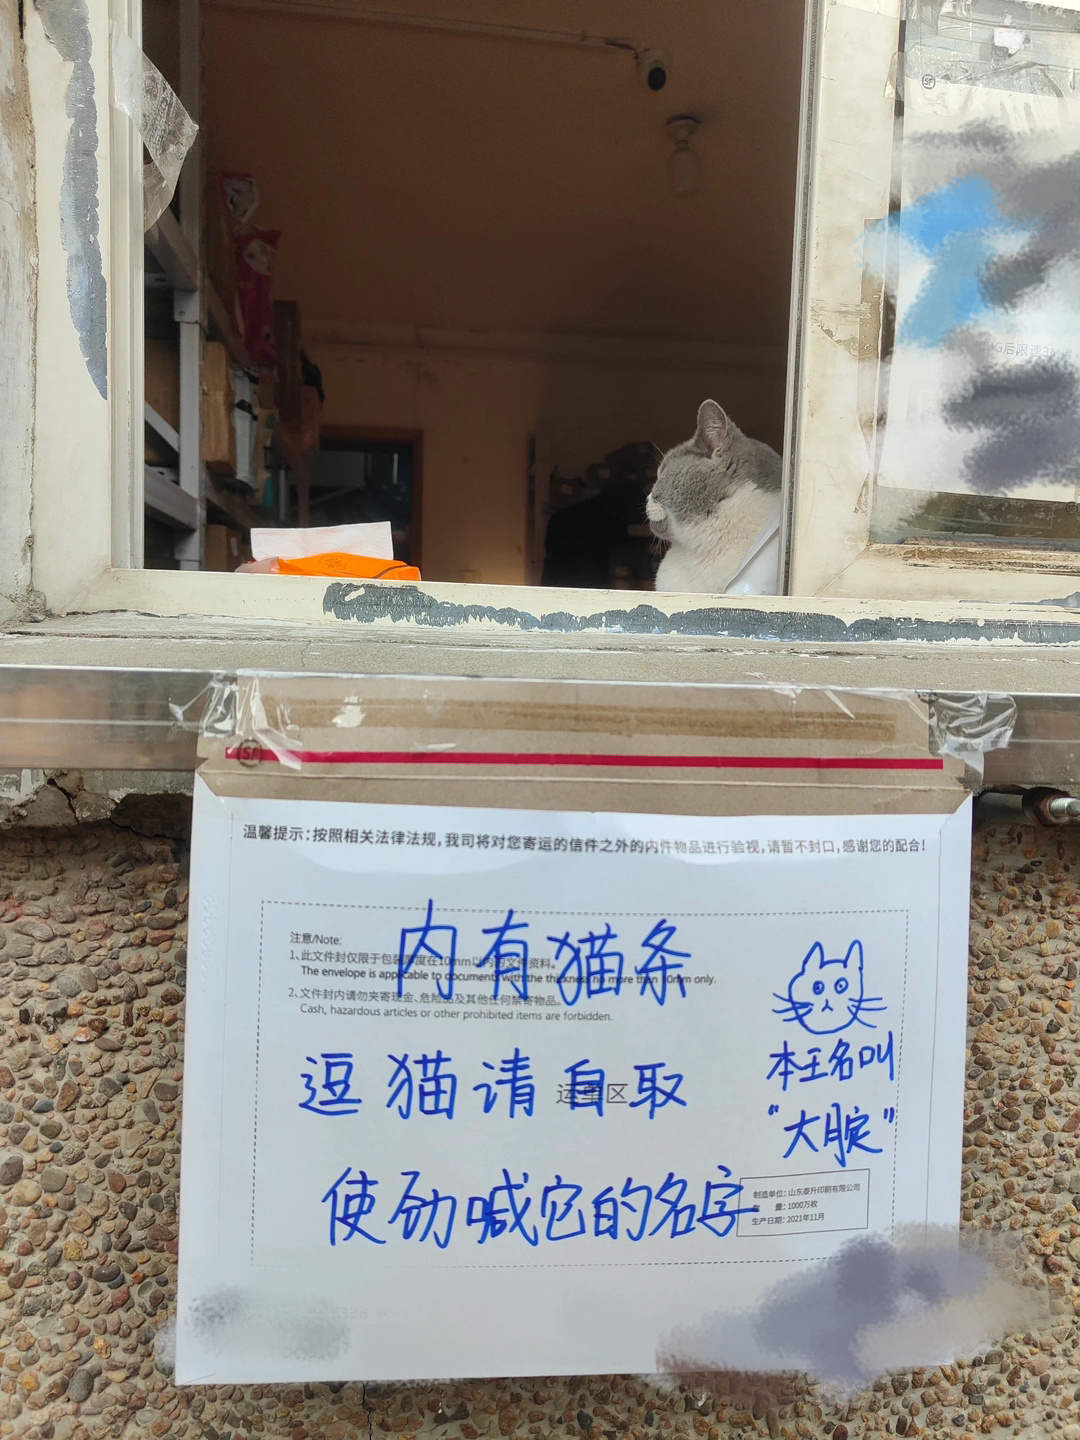 SF
G后限速3
SF
温馨提示：按照相关法律法规，我司将对您寄运的信件之外的内件物品进行验视，请暂不封口，感谢您的配合！
内有猫条
注意/Note:
1、此文件封仅限于包装厚度在10mm以内的文件资料。
The envelope is applicable to documents with the thickness no more than 10mm only.
2、文件封内请勿夹寄现金、危险品及其他任何禁寄物品。
Cash, hazardous articles or other prohibited items are forbidden.
逗猫请自取
运单区
本王名叫
“大腚”
使劲喊它的名字
制造单位：山东泰升印刷有限公司
量：1000万枚
生产日期：2021年11月